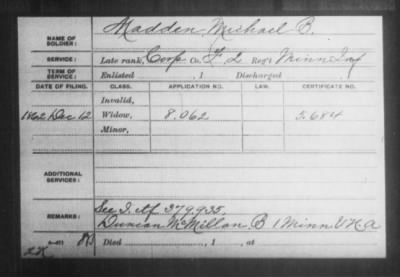 NAME OF SOLDIER: Madden, Michael B.
SERVICE: Late rank, Corp Co. F, 2 Reg't Minn Inf
TERM OF SERVICE: Enlisted , 1 Discharged , 1
DATE OF FILING. CLASS. APPLICATION NO. LAW. CERTIFICATE NO.
Invalid,
1862 Dec 12 Widow, 8.062 5.684
Minor,
ADDITIONAL SERVICES:
REMARKS: See I. Af. 379.935.
Duncan McMillan, B 1 Minn V H A
Died , 1 , at